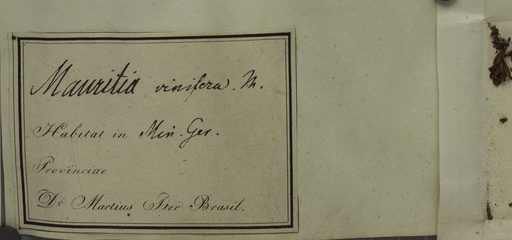 Mauritia vinifera. M.
Habitat in Min. Ger.
Provinciae
Dr Martius Iter Brasil.